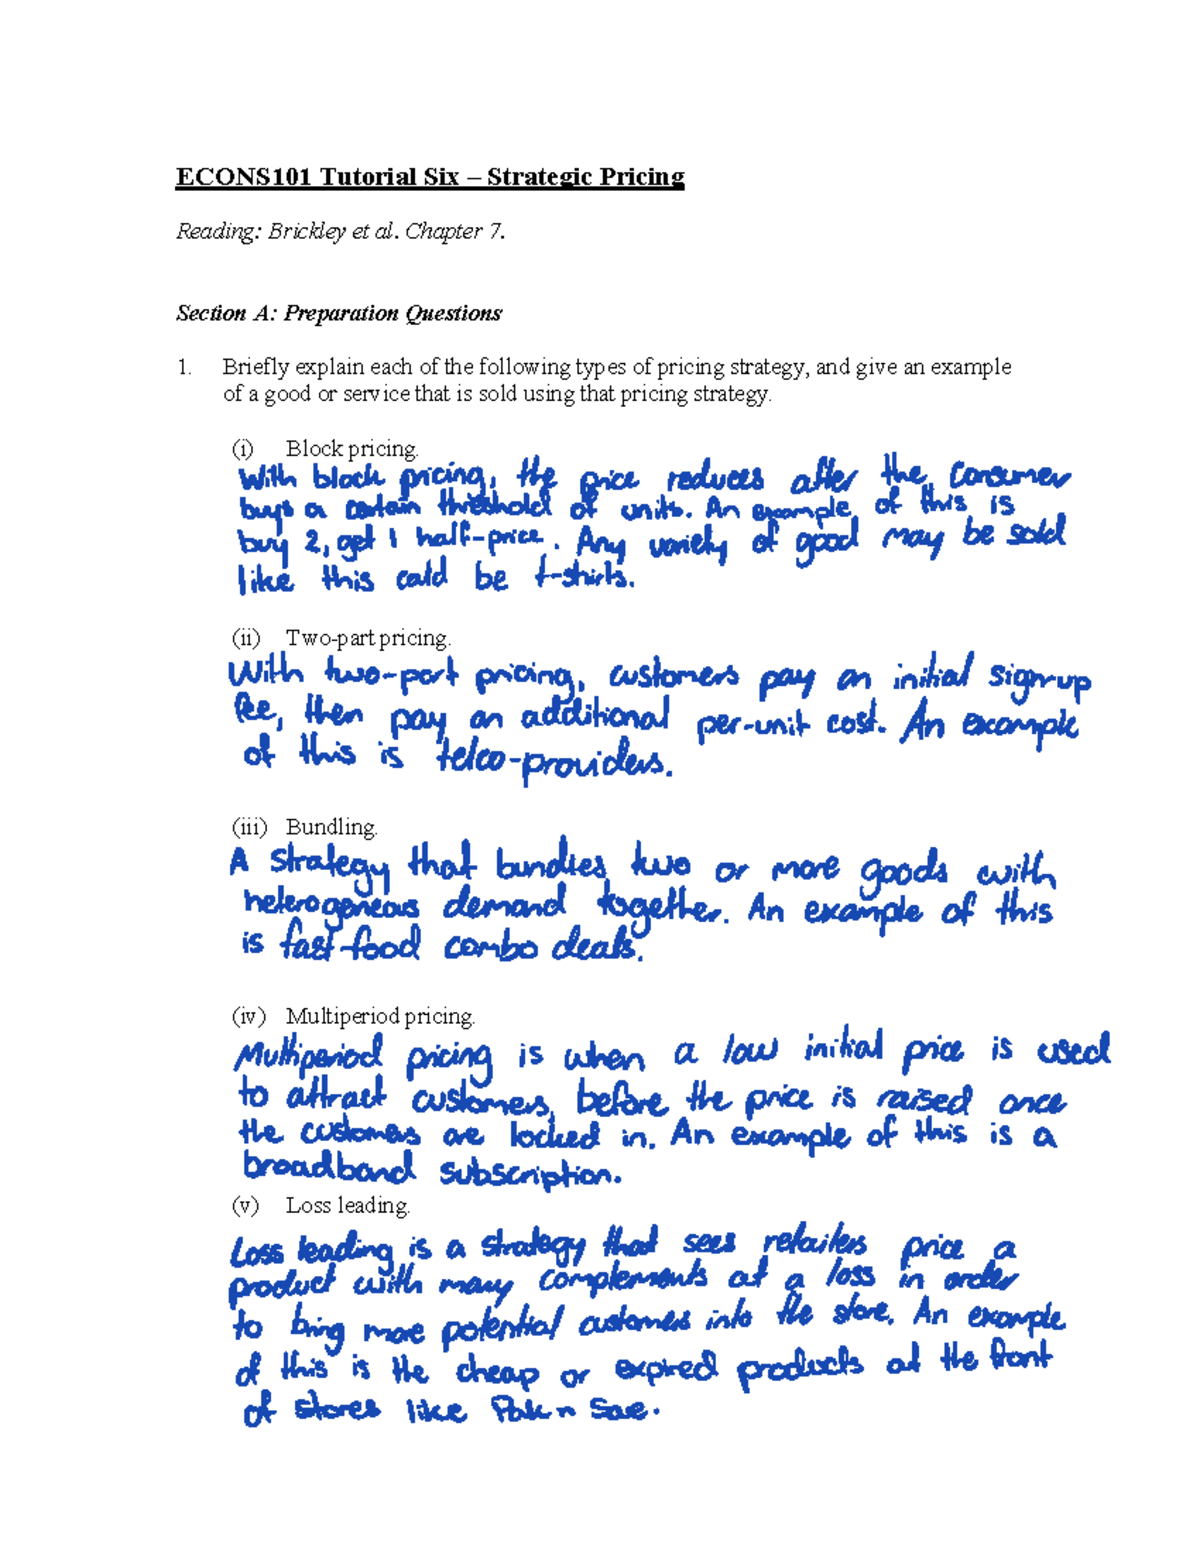 ECONS101 Tutorial Six – Strategic Pricing
Reading: Brickley et al. Chapter 7.
Section A: Preparation Questions
1. Briefly explain each of the following types of pricing strategy, and give an example
of a good or service that is sold using that pricing strategy.
(i) Block pricing.
With block pricing, the price reduces after the consumer
buys a certain threshold of units. An example of this is
buy 2, get 1 half-price. Any variety of good may be sold
like this could be t-shirts.
(ii) Two-part pricing.
With two-part pricing, customers pay an initial sign-up
fee, then pay an additional per-unit cost. An example
of this is telco-providers.
(iii) Bundling.
A strategy that bundles two or more goods with
heterogeneous demand together. An example of this
is fast-food combo deals.
(iv) Multiperiod pricing.
Multiperiod pricing is when a low initial price is used
to attract customers, before the price is raised once
the customers are locked in. An example of this is a
broadband subscription.
(v) Loss leading.
Loss leading is a strategy that sees retailers price a
product with many complements at a loss in order
to bring more potential customers into the store. An example
of this is the cheap or expired products at the front
of stores like Pak n Save.